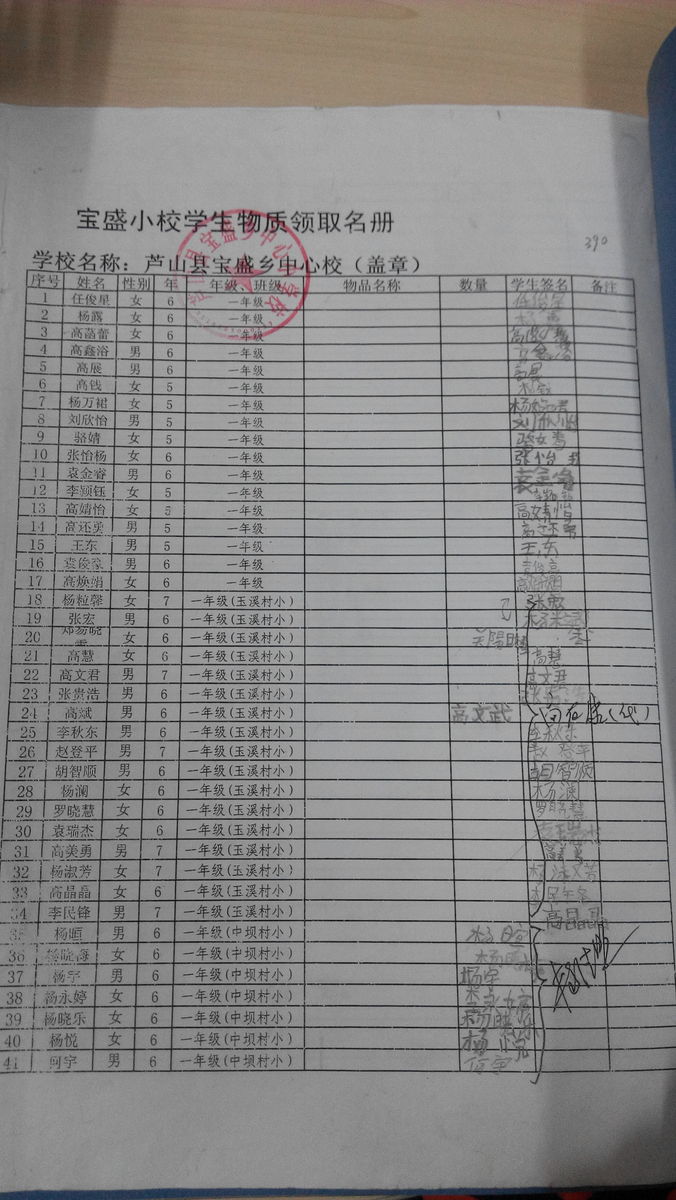 宝盛小校学生物质领取名册
390
学校名称：芦山县宝盛乡中心校（盖章）
序号 姓名 性别 年 年级、班级 物品名称 数量 学生签名 备注
1 任俊星 女 6 一年级
2 杨露 女 6 一年级
3 高菡蕾 女 6 一年级
4 高鑫浴 男 6 一年级
5 高展 男 6 一年级
6 高钱 女 5 一年级
7 杨万裙 女 5 一年级
8 刘欣怡 男 5 一年级 刘欣怡
9 骆婧 女 5 一年级
10 张怡杨 女 6 一年级 张怡
11 袁金睿 男 6 一年级 袁金睿
12 李颖钰 女 5 一年级
13 高婧怡 女 5 一年级 高婧怡
14 高还勇 男 5 一年级
15 王东 男 5 一年级 王东
16 袁俊豪 男 6 一年级
17 高焕娟 女 6 一年级
18 杨粒馨 女 7 一年级(玉溪村小)
19 张宏 男 6 一年级(玉溪村小)
20 郑易晓 女 6 一年级(玉溪村小)
21 高慧 女 6 一年级(玉溪村小) 高慧
22 高文君 男 7 一年级(玉溪村小) 高文君
23 张贵浩 男 6 一年级(玉溪村小)
24 高斌 男 6 一年级(玉溪村小) 高文武
25 李秋东 男 6 一年级(玉溪村小) 李秋东
26 赵登平 男 7 一年级(玉溪村小) 赵登平
27 胡智顺 男 6 一年级(玉溪村小) 胡智顺
28 杨澜 女 6 一年级(玉溪村小) 杨澜
29 罗晓慧 女 6 一年级(玉溪村小) 罗晓慧
30 袁瑞杰 女 6 一年级(玉溪村小)
31 高美勇 男 7 一年级(玉溪村小)
32 杨淑芳 女 7 一年级(玉溪村小)
33 高晶晶 女 6 一年级(玉溪村小)
34 李民锋 男 7 一年级(玉溪村小) 高晶晶
35 杨晅 男 6 一年级(中坝村小)
36 女 6 一年级(中坝村小)
37 杨宇 男 6 一年级(中坝村小) 杨宇
38 杨永婷 女 6 一年级(中坝村小)
39 杨晓乐 女 6 一年级(中坝村小)
40 杨悦 女 6 一年级(中坝村小)
41 何宇 男 6 一年级(中坝村小)